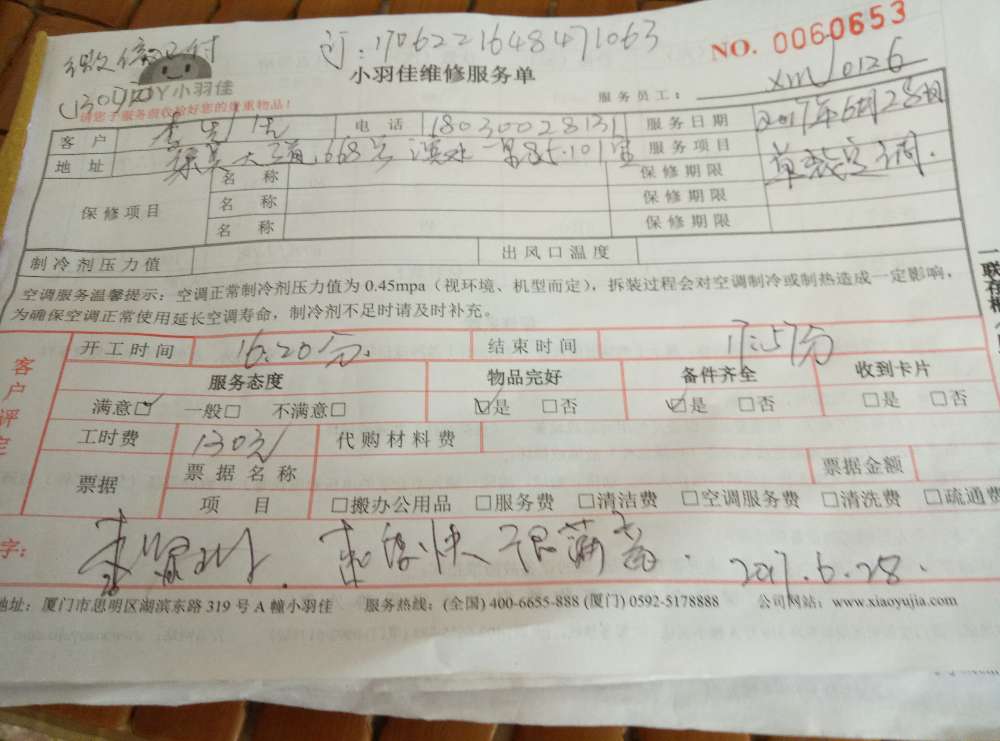 微信已付
130元
订:1706221648471063
NO. 0060653
小羽佳
小羽佳维修服务单
服务员工: xm0126
请您于服务前收拾好您的贵重物品!
客户 李先生 电话 18030028131 服务日期 2017年6月28日
地址 大道668号 101室 服务项目 单装空调.
保修项目 名称 保修期限
名称 保修期限
名称 保修期限
制冷剂压力值 出风口温度
空调服务温馨提示:空调正常制冷剂压力值为 0.45mpa(视环境、机型而定),拆装过程会对空调制冷或制热造成一定影响,
为确保空调正常使用延长空调寿命,制冷剂不足时请及时补充。
客户评定
开工时间 16.20分. 结束时间 17:57分
服务态度 物品完好 备件齐全 收到卡片
满意☑ 一般□ 不满意□ ☑是 □否 ☑是 □否 □是 □否
工时费 130元 代购材料费
票据 票据名称 票据金额
项目 □搬办公用品 □服务费 □清洁费 □空调服务费 □清洗费 □疏通费
字: 很满意. 2017.6.28.
地址:厦门市思明区湖滨东路 319 号 A 幢小羽佳 服务热线:(全国) 400-6655-888 (厦门) 0592-5178888 公司网站:www.xiaoyujia.com